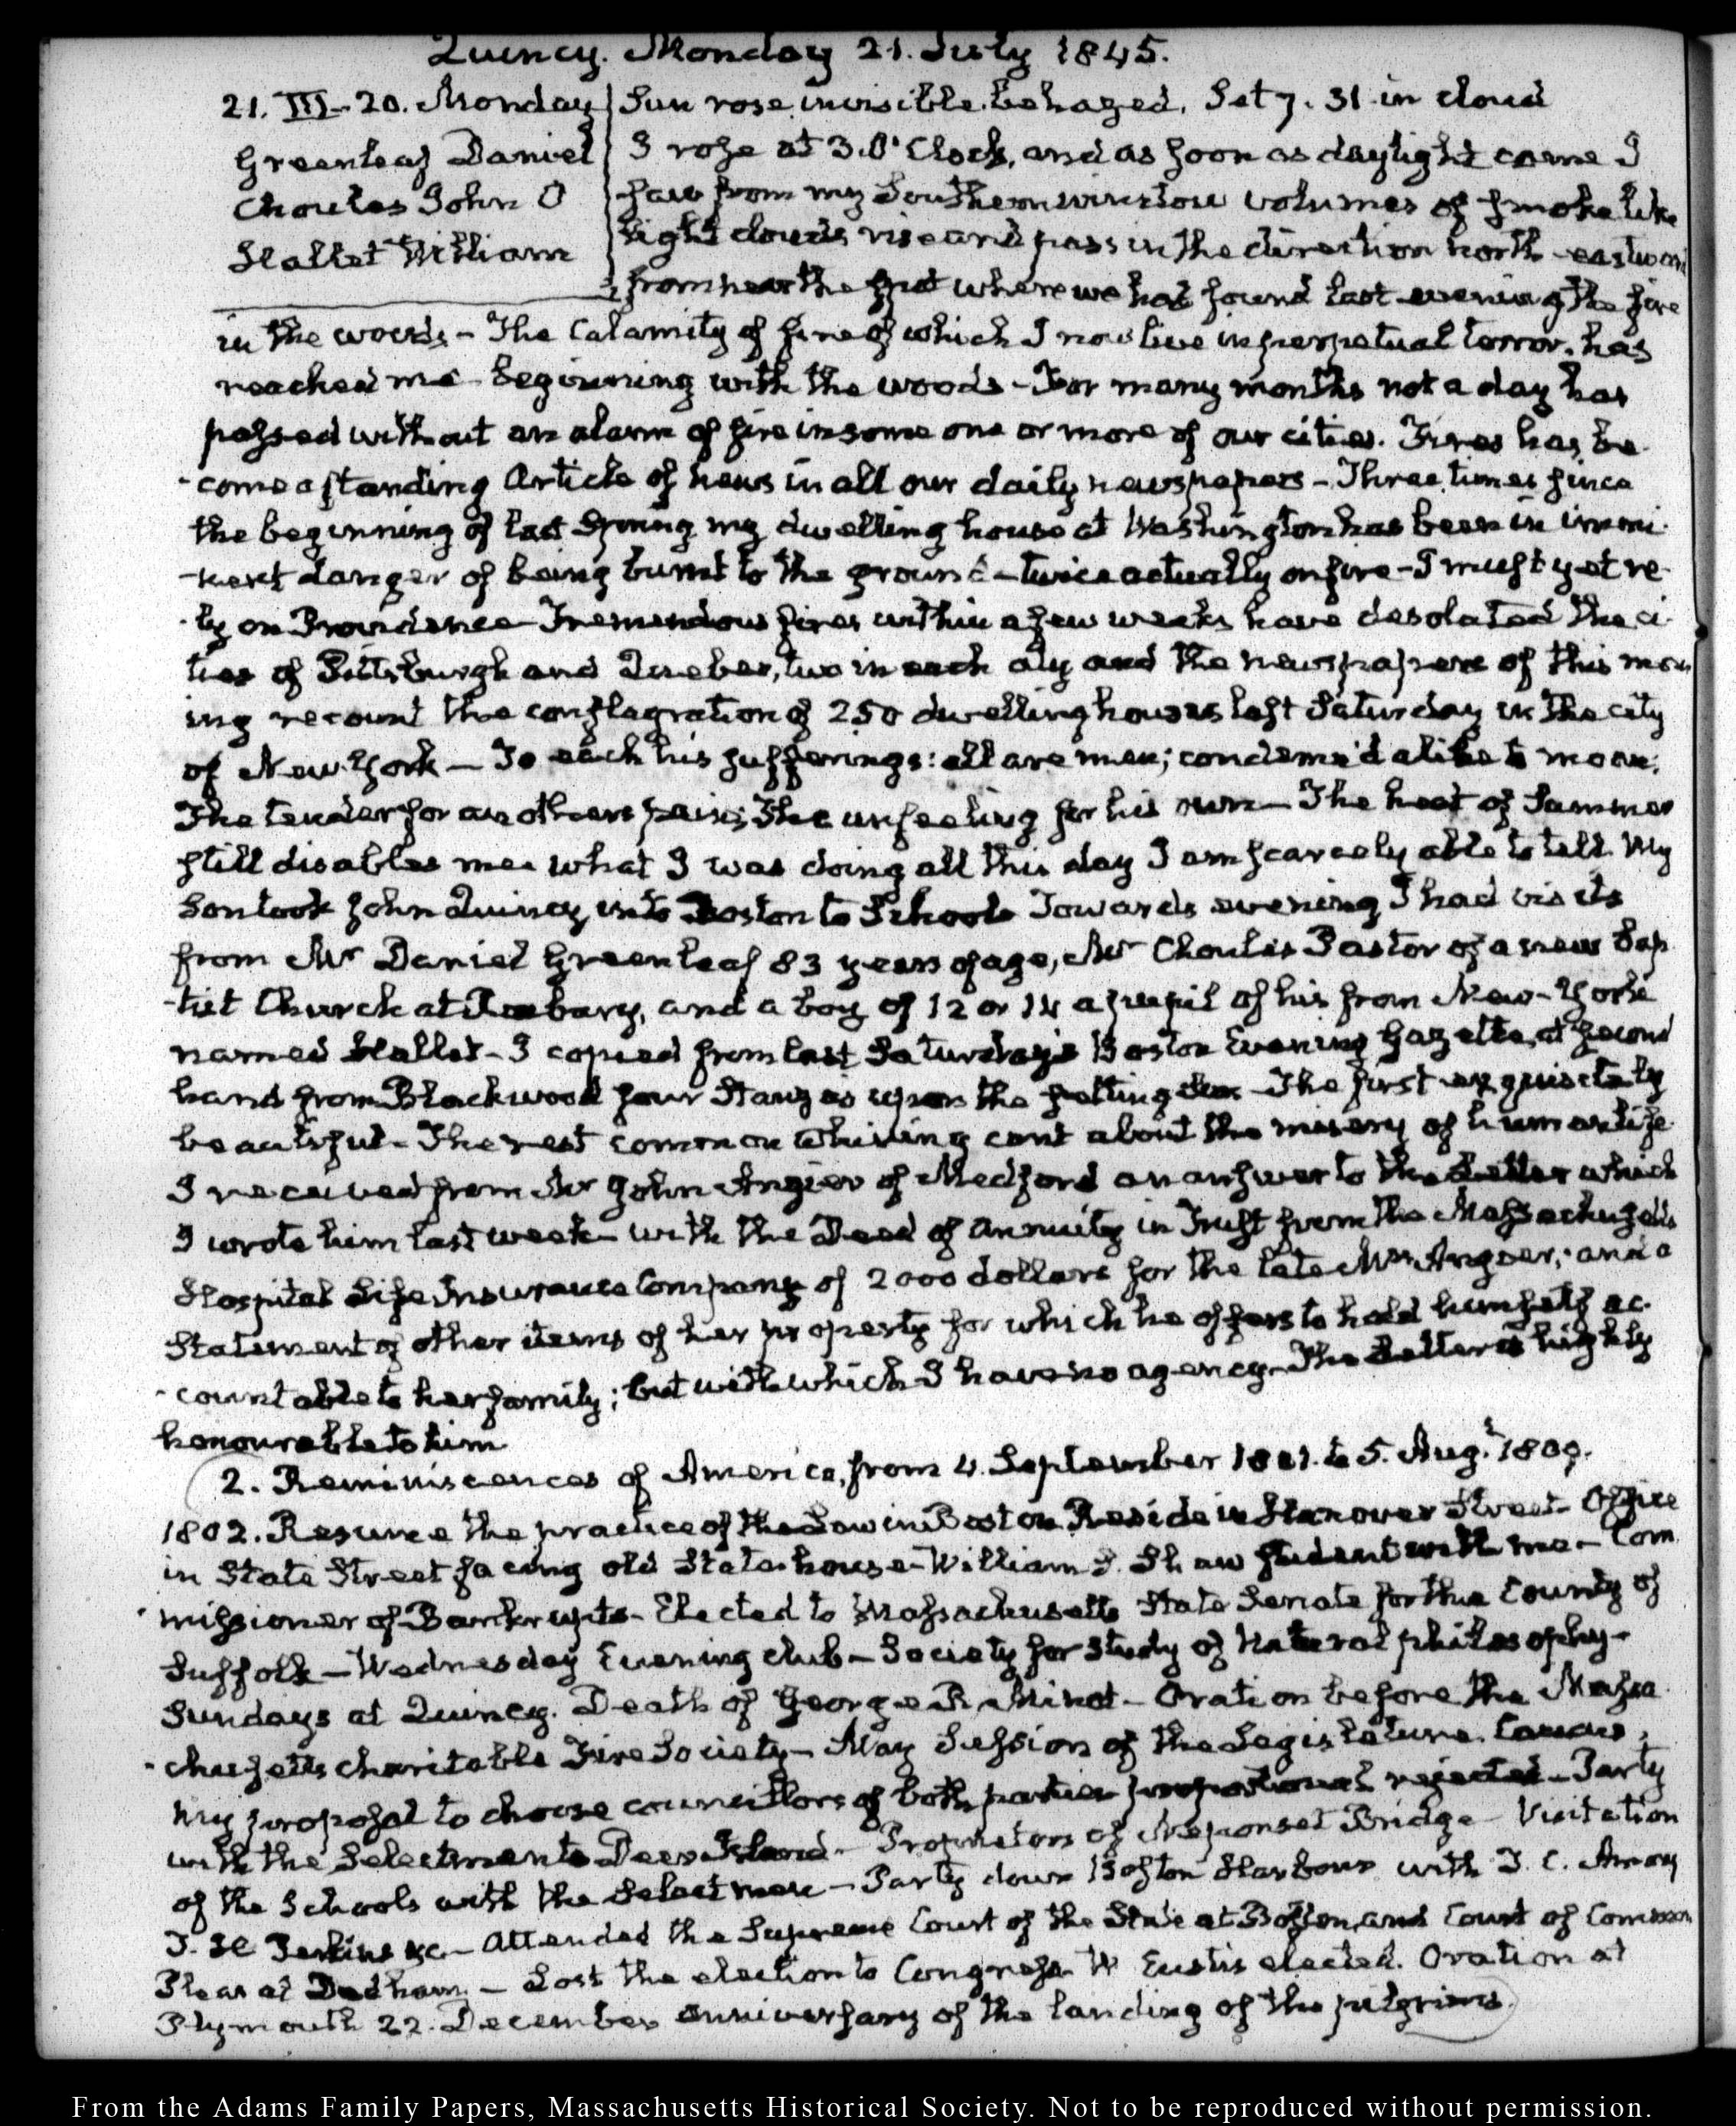 Quincy. Monday 21. July 1845.
21. III-20. Monday
Greenleaf Daniel
Choules John O
Hallet William
Sun rose invisible, behazed, Set 7. 31 in cloud
I rose at 3.O'Clock, and as soon as daylight came I
saw from my Southern window volumes of smoke like
light clouds rise and pass in the direction north-eastward
from near the spot where we had found last evening the fire
in the woods – The Calamity of fire of which I now live in perpetual terror, has
reached me – beginning with the woods – For many months not a day has
passed without an alarm of fire in some one or more of our cities. Fires has be-
-come a standing Article of news in all our daily newspapers – Three times since
the beginning of last Spring my dwelling house at Washington has been in immi-
-nent danger of being burnt to the ground – twice actually on fire – I must yet re-
-ly on Providence – Tremendous fires within a few weeks have desolated the ci-
ties of Pittsburgh and Quebec, two in each city and the newspapers of this morn
ing recount the conflagration of 250 dwelling houses last Saturday in the city
of New-York – To each his sufferings: all are men; condemn'd alike to moan;
The tender for another's pain; The unfeeling for his own – The heat of Summer
still disables me what I was doing all this day I am scarcely able to tell. My
Son took John Quincy into Boston to School Towards evening I had visits
from Mr Daniel Greenleaf 83 years of age, Mr Choules Pastor of a new Bap
-tist Church at Roxbury, and a boy of 12 or 14 a pupil of his from New-York
named Hallet – I copied from last Saturday's Boston Evening Gazette, at second
hand from Blackwood four Stanzas upon the falling – The first exquisitely
beautiful – The rest common whining cant about the misery of human life
I received from Mr John Angier of Medford an answer to the Letter which
I wrote him last week – with the Deed of annuity in Trust from the Massachusetts
Hospital Life Insurance Company of 2000 dollars for the late Mrs Angier; and a
Statement of other items of her property for which he offers to hold himself ac-
-countable to her family; but with which I have no agency – The Letter is highly
honourable to him
2. Reminiscences of America, from 4. September 1801. to 5. Augt 1809.
1802. Resume the practice of the Law in Boston. Reside in Hanover Street – Office
in State Street facing old State-house – William S. Shaw student with me – Com
missioner of Bankrupts – Elected to Massachusetts State Senate for the County of
Suffolk – Wednesday Evening club – Society for Study of Natural philosophy –
Sundays at Quincy. Death of George R. Minot – Oration before the Massa
-chusetts charitable Fire Society – May Session of the Legislature. Caucus;
my proposal to choose councillors of both parties rejected – Party
with the Selectmen to Deer Island – Proprietors of Neponset Bridge – Visitation
of the Schools with the Select men – Party down Boston Harbour with T. C. Amory
T. H. Perkins &c – Attended the Supreme Court of the State at Boston, and Court of Common
Pleas at Dedham – Lost the election to Congress. W. Eustis elected. Oration at
Plymouth 22. December anniversary of the landing of the pilgrims.
From the Adams Family Papers, Massachusetts Historical Society. Not to be reproduced without permission.